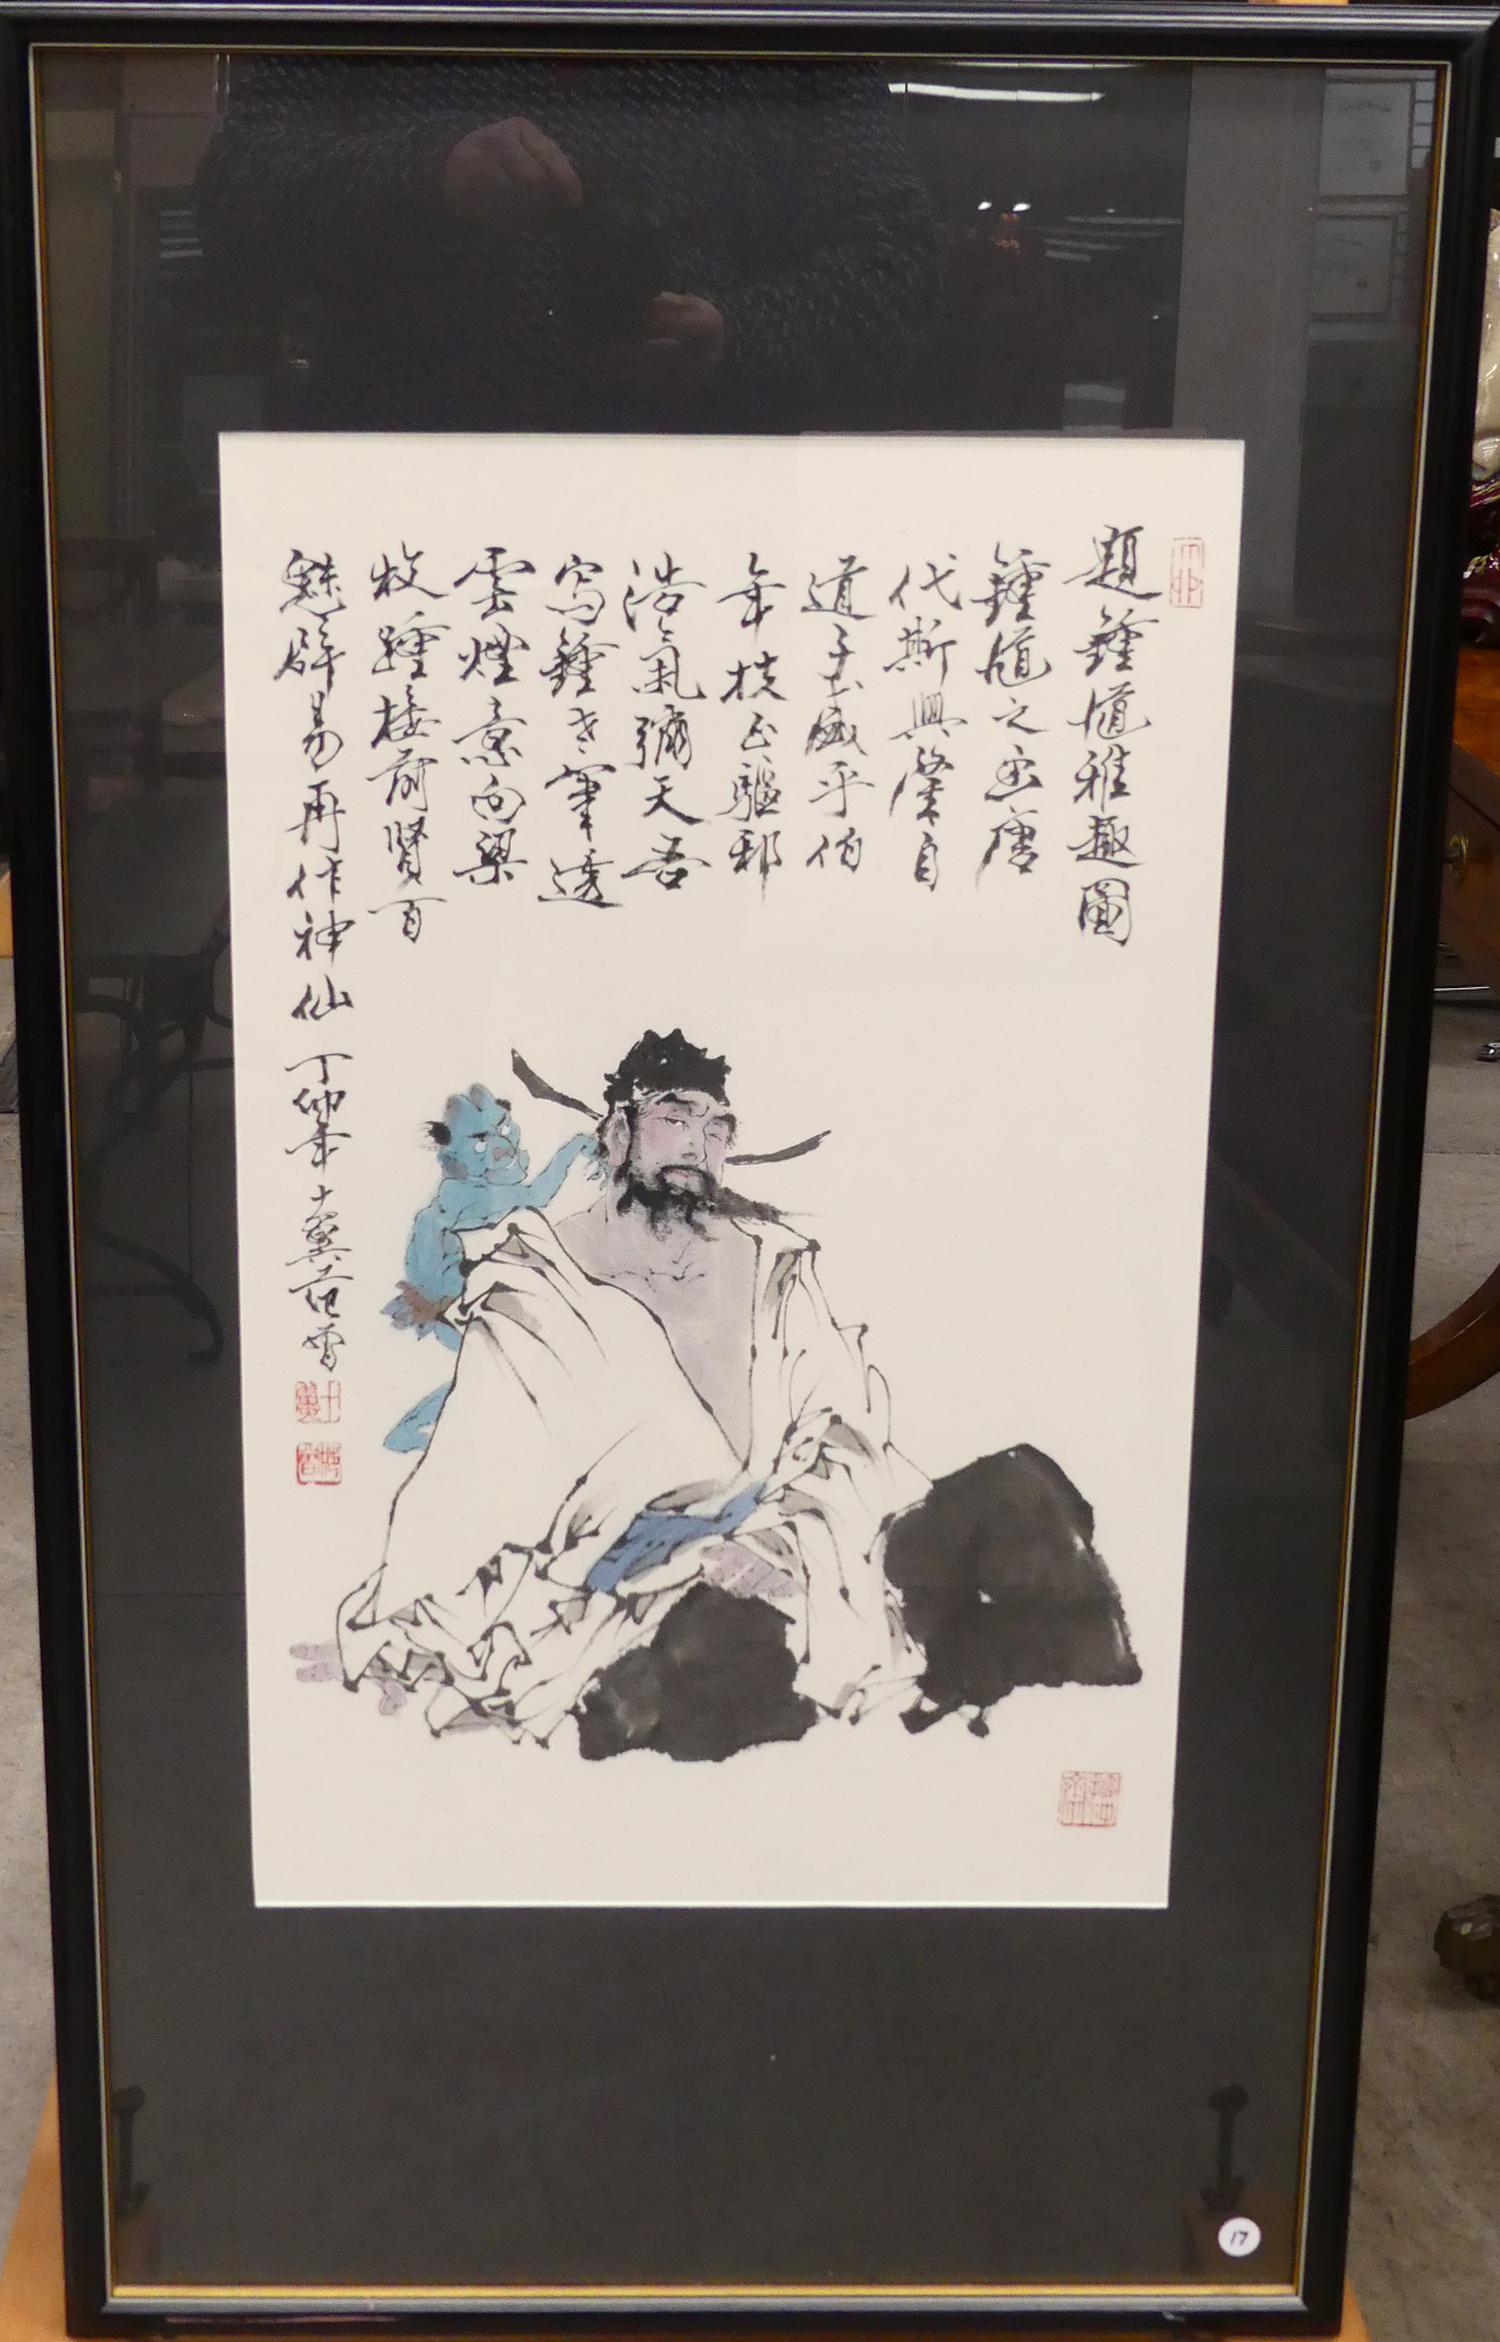 題鍾馗雅趣圖
鍾馗之出唐
代斯興肇自
道子盛乎伯
年扶正驅邪
浩氣彌天吾
寫鍾老筆透
雲煙意向梁
接前賢百
魅辟易再作神仙 丁卯年十翼范曾
十翼
范曾
17